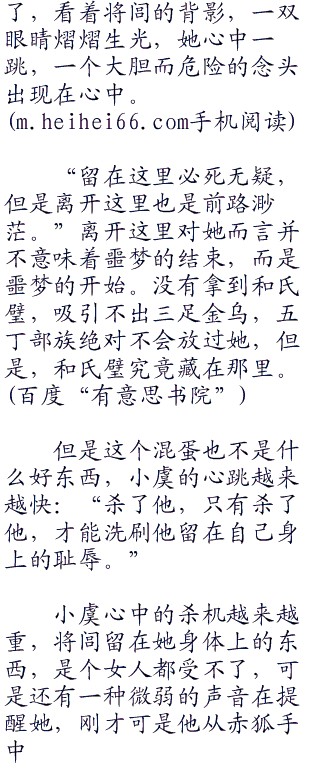 了，看着将闾的背影，一双
眼睛熠熠生光，她心中一
跳，一个大胆而危险的念头
出现在心中。
(m.heihei66.com手机阅读)
“留在这里必死无疑，
但是离开这里也是前路渺
茫。”离开这里对她而言并
不意味着噩梦的结束，而是
噩梦的开始。没有拿到和氏
璧，吸引不出三足金乌，五
丁部族绝对不会放过她，但
是，和氏璧究竟藏在那里。
(百度“有意思书院”)
但是这个混蛋也不是什
么好东西，小虞的心跳越来
越快：“杀了他，只有杀了
他，才能洗刷他留在自己身
上的耻辱。”
小虞心中的杀机越来越
重，将闾留在她身体上的东
西，是个女人都受不了，可
是还有一种微弱的声音在提
醒她，刚才可是他从赤狐手
中